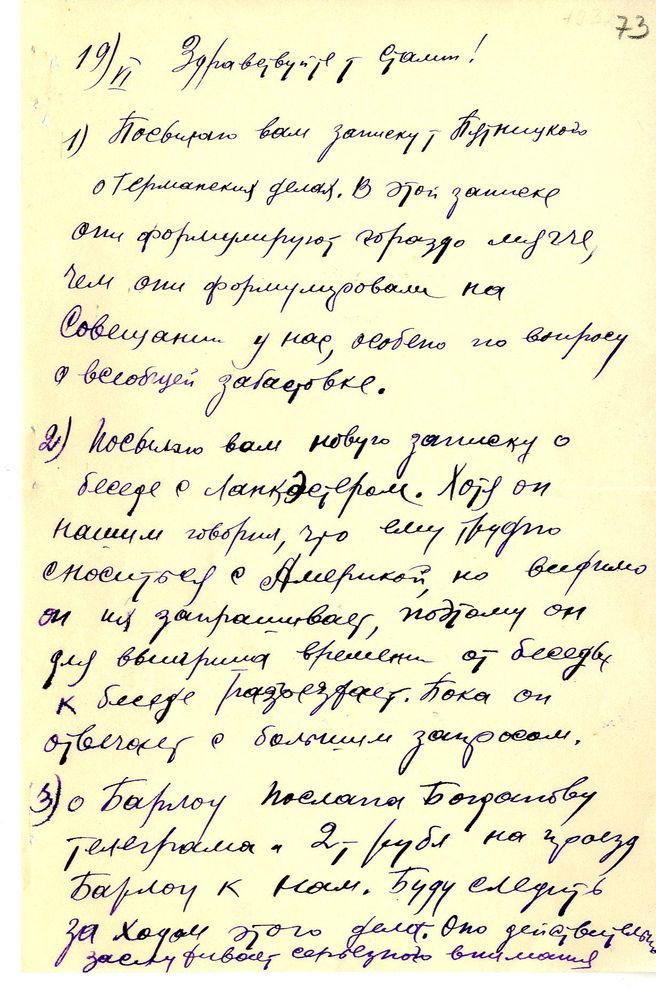 73
19)/VI Здравствуйте т Сталин!
1) Посылаю вам записку т Пятницкого
о Германских делах. В этой записке
они формулируют гораздо мягче,
чем они формулировали на
Совещании у нас, особено по вопросу
о всеобщей забастовке.
2) Посылаю вам новую записку о
беседе с Ланкастером. Хотя он
нашим говорил, что ему трудно
сноситься с Америкой, но видимо
он их запрашивает, поэтому он
для выигриша времени от беседы
к беседе разъезжает. Пока он
отвечает с большим запросом.
3) о Барлоу послана Богданову
телеграма и 2 т рубл на проезд
Барлоу к нам. Буду следить
за ходом этого дела. Оно действительно
заслуживает серьезного внимания